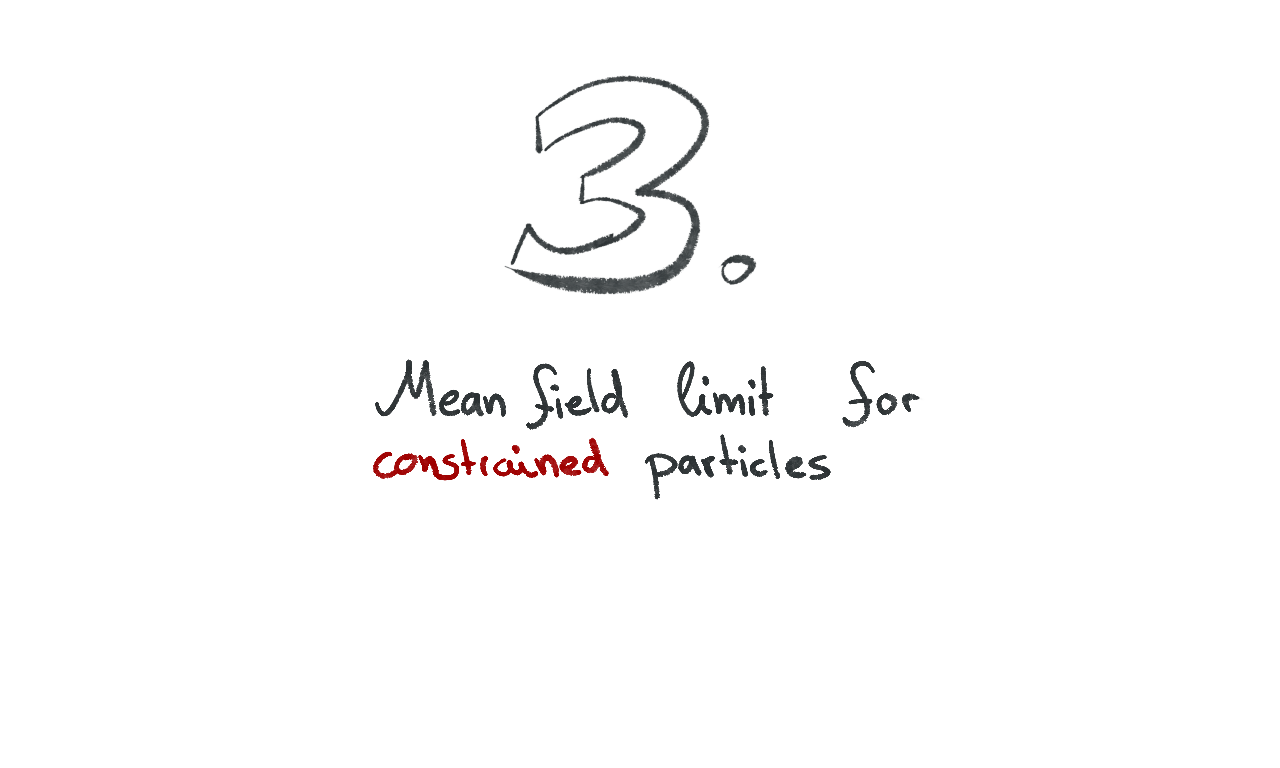 3.
Mean field limit for
constrained particles